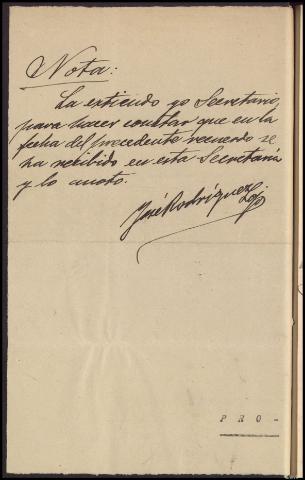 Nota:
La extiendo yo Secretario,
para hacer constar que en la
fecha del precedente recuerdo se
ha recibido en esta Secretaría
y lo anoto.
José Rodríguez
P R O -